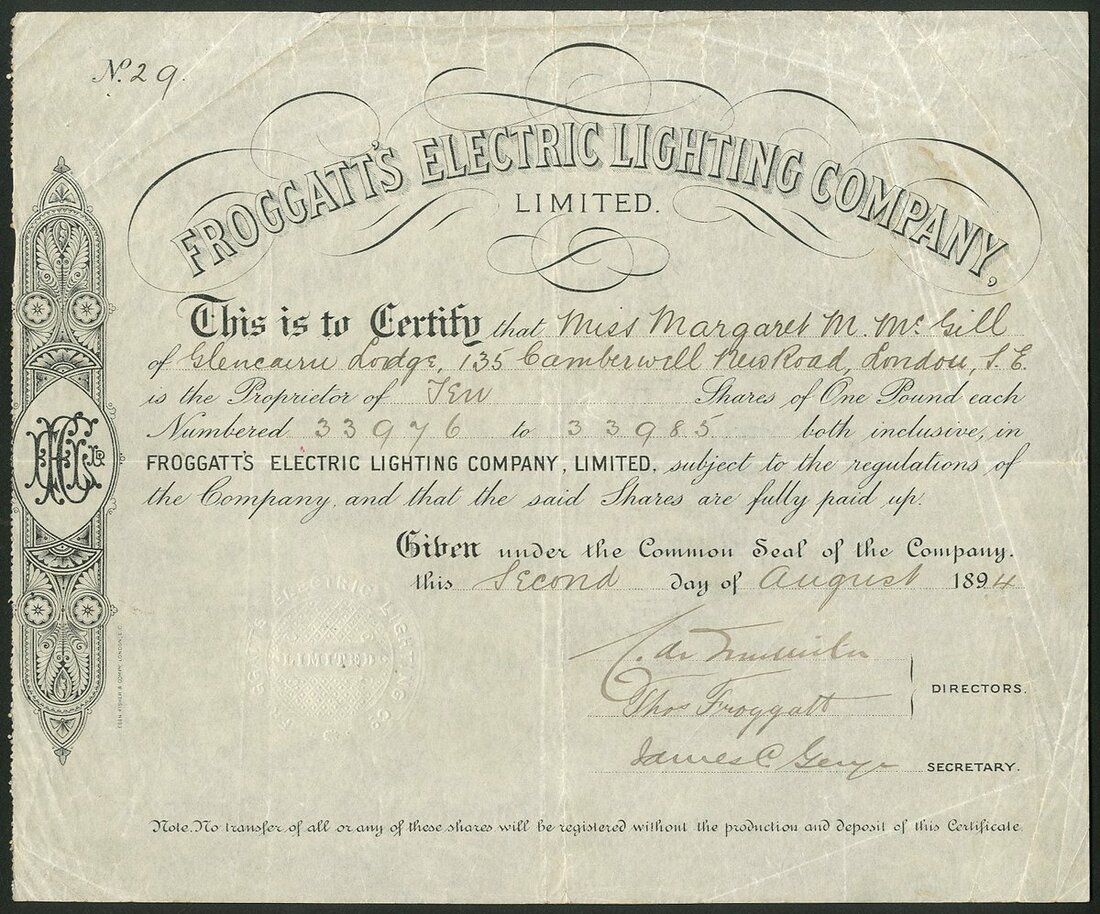 No. 29.
FROGGATT'S ELECTRIC LIGHTING COMPANY,
LIMITED.
This is to Certify that Miss Margaret M. McGill
of Glencairn Lodge, 135 Camberwell New Road, London, S.E.
is the Proprietor of Ten Shares of One Pound each
Numbered 33976 to 33985 both inclusive, in
FROGGATT'S ELECTRIC LIGHTING COMPANY, LIMITED, subject to the regulations of
the Company, and that the said Shares are fully paid up.
Given under the Common Seal of the Company.
this Second day of August 1894
Thos Froggatt
DIRECTORS.
James C
SECRETARY.
Note. No transfer of all or any of these shares will be registered without the production and deposit of this Certificate
LD
ELECTRIC LIGHTING
LIMITED